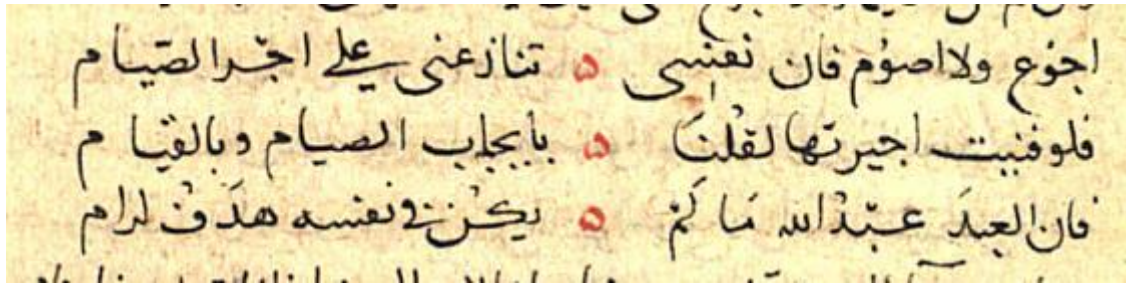 اجوع ولا اصوم فان نفسى ه تنازعنى على اجر الصيام
فلو فنيت اجيرتها لقلنا ه بايجاب الصيام وبالقيام
فان العبد عبد الله ما لم ه يكن فى نفسه هدف لرام